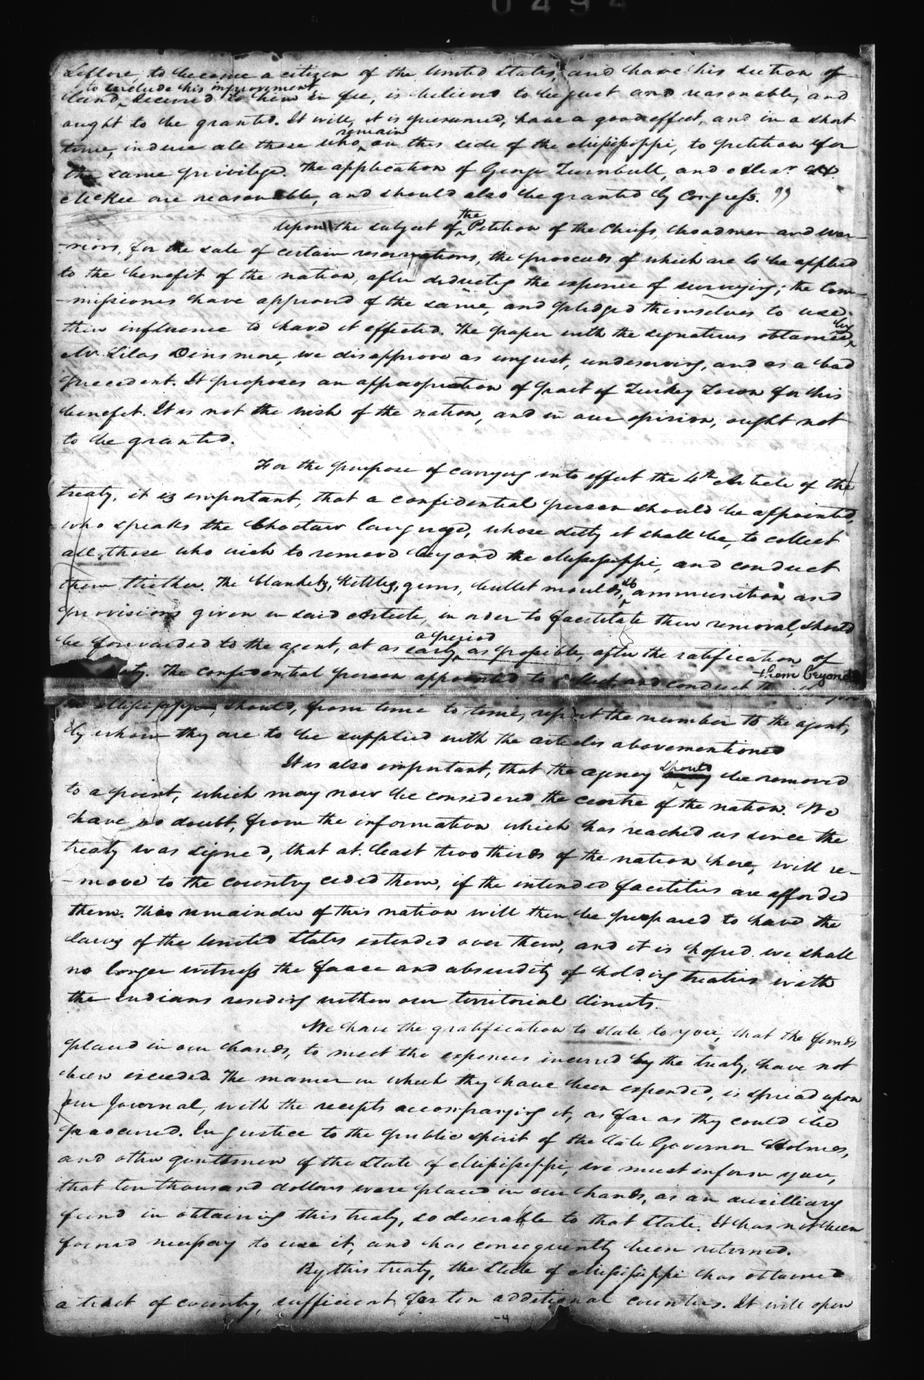 0494
Leflore, to become a citizen of the United States, and have his section of
to include his improvement
land, secured to him in fee, is believed to be just and reasonable, and
ought to be granted. It will, it is presumed, have a good effect, and in a short
remain
time, induce all those who, on this side of the Mississippi, to petition for
the same privilege. The application of George Turnbull, and
McKee are reasonable, and should also be granted by Congress."
the
Upon the subject of Petition of the Chiefs, headmen and war-
-riors, for the sale of certain reservations, the proceeds of which are to be applied
to the benefit of the nation, after deducting the expence of surveying; the Com-
-missioners have approved of the same, and pledged themselves to use
by
their influence to have it effected. The paper with the signatures obtained
Mr. Silas Dinsmore, we disapprove as unjust, undeserving, and as a bad
precedent. It proposes an appropriation of part of Turkey Town for his
benefit. It is not the wish of the nation, and in our opinion, ought not
to be granted.
For the purpose of carrying into effect the 4th Article of the
treaty, it is important, that a confidential person should be appointed,
who speaks the Choctaw language, whose duty it shall be, to collect
all, those who wish to remove beyond the Mississippi, and conduct
them thither. The blankets, kettles, guns, bullet moulds, & ammunition and
provisions given in said Article, in order to facilitate their removal, should
a period
be forwarded to the agent, at as early as possible, after the ratification of
ty. The confidential person appointed to collect and conduct them beyond
the Mississippi, should, from time to time, report the number to the agent,
by whom they are to be supplied with the articles abovementioned
should
It is also important, that the agency be removed
to a point, which may now be considered the centre of the nation. We
have no doubt, from the information which has reached us since the
treaty was signed, that at least two thirds of the nation here, will re-
-move to the country ceded them, if the intended facilities are afforded
them. The remainder of this nation will then be prepared to have the
laws of the United States extended over them, and it is hoped we shall
no longer witness the farce and absurdity of holding treaties with
the Indians residing within our territorial limits.
We have the gratification to state to you, that the funds
placed in our hands, to meet the expences incurred by the treaty, have not
been exceeded. The manner in which they have been expended, is spread upon
our Journal, with the receipts accompanying it, as far as they could be
procured. In justice to the public spirit of the late Governor Holmes,
and other gentlemen of the State of Mississippi, we must inform you,
that ten thousand dollars were placed in our hands, as an auxilliary
fund in obtaining this treaty, so desirable to that state. It has not been
found necessary to use it, and has consequently been returned.
By this treaty, the State of Mississippi has obtained
a tract of country, sufficient for ten additional counties. It will open